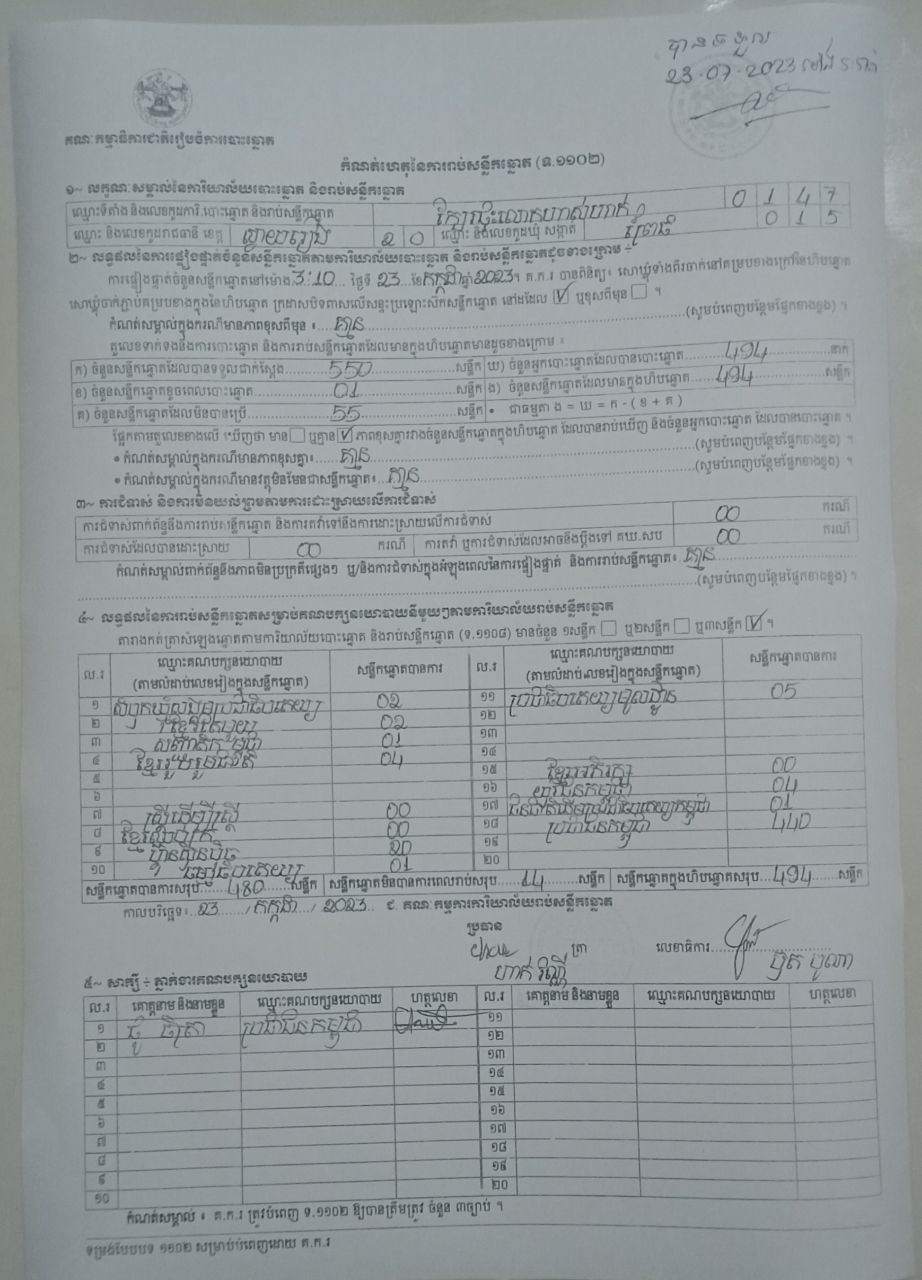 បានទទួល
23-07-2023 ម៉ោង
គណៈកម្មាធិការជាតិរៀបចំការបោះឆ្នោត
កំណត់ហេតុនៃការរាប់សន្លឹកឆ្នោត (ទ.១១០២)
១~ លក្ខណៈសម្គាល់នៃការិយាល័យបោះឆ្នោត និងរាប់សន្លឹកឆ្នោត
ឈ្មោះទីតាំង និងលេខកូដការិ.បោះឆ្នោត និងរាប់សន្លឹកឆ្នោត 0 1 4 7
ឈ្មោះ និងលេខកូដរាជធានី ខេត្ត ស្វាយរៀង 2 0 ឈ្មោះ និងលេខកូដឃុំ សង្កាត់ 0 1 5
២~ លទ្ធផលនៃការផ្ទៀងផ្ទាត់ចំនួនសន្លឹកឆ្នោតតាមការិយាល័យបោះឆ្នោត និងរាប់សន្លឹកឆ្នោតដូចខាងក្រោម ÷
ការផ្ទៀងផ្ទាត់ចំនួនសន្លឹកឆ្នោតនៅម៉ោង 3:10 ថ្ងៃទី 23 ខែ កក្កដា ឆ្នាំ 2023 ។ គ.ក.រ បានពិនិត្យ៖ សោឃ្មុំទាំងពីរចាក់នៅគម្របខាងក្រៅនៃហិបឆ្នោត
សោឃ្មុំចាក់ភ្ជាប់គម្របខាងក្នុងនៃហិបឆ្នោត ក្រដាសបិទពាសលើសន្ទះប្រឡោះស៊កសន្លឹកឆ្នោត នៅដដែល ☑ ឬខុសពីមុន ☐ ។
កំណត់សម្គាល់ក្នុងករណីមានភាពខុសពីមុន ៖ គ្មាន (សូមបំពេញបន្ថែមផ្នែកខាងខ្នង) ។
តួលេខទាក់ទងនឹងការបោះឆ្នោត និងការរាប់សន្លឹកឆ្នោតដែលមានក្នុងហិបឆ្នោតមានដូចខាងក្រោម ៖
ក) ចំនួនសន្លឹកឆ្នោតដែលបានទទួលជាក់ស្តែង 550 សន្លឹក ឃ) ចំនួនអ្នកបោះឆ្នោតដែលបានបោះឆ្នោត 494 នាក់
ខ) ចំនួនសន្លឹកឆ្នោតខូចពេលបោះឆ្នោត 01 សន្លឹក ង) ចំនួនសន្លឹកឆ្នោតដែលមានក្នុងហិបឆ្នោត 494 សន្លឹក
គ) ចំនួនសន្លឹកឆ្នោតដែលមិនបានប្រើ 55 សន្លឹក • ជាធម្មតា ង = ឃ = ក - ( ខ + គ )
ផ្អែកតាមតួលេខខាងលើ ឃើញថា មាន ☐ ឬគ្មាន ☑ ភាពខុសគ្នារវាងចំនួនសន្លឹកឆ្នោតក្នុងហិបឆ្នោត ដែលបានរាប់ឃើញ និងចំនួនអ្នកបោះឆ្នោត ដែលបានបោះឆ្នោត ។
• កំណត់សម្គាល់ក្នុងករណីមានភាពខុសគ្នា៖ គ្មាន (សូមបំពេញបន្ថែមផ្នែកខាងខ្នង) ។
• កំណត់សម្គាល់ក្នុងករណីមានវត្ថុមិនមែនជាសន្លឹកឆ្នោត៖ គ្មាន (សូមបំពេញបន្ថែមផ្នែកខាងខ្នង) ។
៣~ ការជំទាស់ និងការមិនយល់ព្រមតាមការដោះស្រាយលើការជំទាស់
ការជំទាស់ពាក់ព័ន្ធនឹងការរាប់សន្លឹកឆ្នោត និងការតវ៉ាទៅនឹងការដោះស្រាយលើការជំទាស់ 00 ករណី
ការជំទាស់ដែលបានដោះស្រាយ 00 ករណី ការតវ៉ា ឬការជំទាស់ដែលអាចនឹងប្តឹងទៅ គឃ.សប 00 ករណី
កំណត់សម្គាល់ពាក់ព័ន្ធនឹងភាពមិនប្រក្រតីផ្សេងៗ ឬ/និងការជំទាស់ក្នុងអំឡុងពេលនៃការផ្ទៀងផ្ទាត់ និងការរាប់សន្លឹកឆ្នោត៖ គ្មាន
(សូមបំពេញបន្ថែមផ្នែកខាងខ្នង) ។
៤~ លទ្ធផលនៃការរាប់សន្លឹកឆ្នោតសម្រាប់គណបក្សនយោបាយនីមួយៗតាមការិយាល័យរាប់សន្លឹកឆ្នោត
តារាងកត់ត្រាសំឡេងឆ្នោតតាមការិយាល័យបោះឆ្នោត និងរាប់សន្លឹកឆ្នោត (ទ.១១០៨) មានចំនួន ១សន្លឹក ☐ ឬ២សន្លឹក ☐ ឬ៣សន្លឹក ☑ ។
ល.រ ឈ្មោះគណបក្សនយោបាយ (តាមលំដាប់លេខរៀងក្នុងសន្លឹកឆ្នោត) សន្លឹកឆ្នោតបានការ ល.រ ឈ្មោះគណបក្សនយោបាយ (តាមលំដាប់លេខរៀងក្នុងសន្លឹកឆ្នោត) សន្លឹកឆ្នោតបានការ
១ សំបុកឃ្មុំសង្គមប្រជាធិបតេយ្យ 02 ១១ ប្រជាធិបតេយ្យមូលដ្ឋាន 05
២ ខ្មែរឥស្សរៈ 02 ១២
៣ សញ្ជាតិកម្ពុជា 01 ១៣
៤ ខ្មែររួបរួមជាតិ 04 ១៤
៥ ១៥ ខ្មែរអភិរក្ស 00
៦ ១៦ យុវជនកម្ពុជា 04
៧ ស្ត្រីដើម្បីស្ត្រី 00 ១៧ ជនជាតិដើមប្រជាធិបតេយ្យកម្ពុជា 01
៨ ខ្មែរឈប់ក្រ 00 ១៨ ប្រជាជនកម្ពុជា 440
៩ ហ្វ៊ុនស៊ិនប៉ិច 20 ១៩
១០ ធម្មាធិបតេយ្យ 01 ២០
សន្លឹកឆ្នោតបានការសរុប 480 សន្លឹក សន្លឹកឆ្នោតមិនបានការពេលរាប់សរុប 14 សន្លឹក សន្លឹកឆ្នោតក្នុងហិបឆ្នោតសរុប 494 សន្លឹក
កាលបរិច្ឆេទ៖ 23 / កក្កដា / 2023 ជ. គណៈកម្មការការិយាល័យរាប់សន្លឹកឆ្នោត
ប្រធាន
ត្រា លេខាធិការ
៥~ សាក្សី ÷ ភ្នាក់ងារគណបក្សនយោបាយ
ល.រ គោត្តនាម និងនាមខ្លួន ឈ្មោះគណបក្សនយោបាយ ហត្ថលេខា ល.រ គោត្តនាម និងនាមខ្លួន ឈ្មោះគណបក្សនយោបាយ ហត្ថលេខា
១ ប្រជាជនកម្ពុជា ១១
២ ១២
៣ ១៣
៤ ១៤
៥ ១៥
៦ ១៦
៧ ១៧
៨ ១៨
៩ ១៩
១០ ២០
កំណត់សម្គាល់ ៖ គ.ក.រ ត្រូវបំពេញ ទ.១១០២ ឱ្យបានត្រឹមត្រូវ ចំនួន ៣ច្បាប់ ។
ទម្រង់បែបបទ ១១០២ សម្រាប់បំពេញដោយ គ.ក.រ